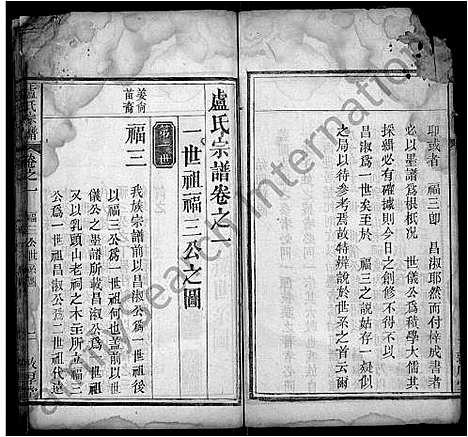 耶或者 福三卽 昌淑耶然而付梓成書者
必以墨譜爲根柢况 世儀公爲積學大儒其
採緝必有確據則今日之創修不得不以
昌淑爲一世矣至於 福三之說姑存一疑似
之局以待參考焉故特辨說於世系之首云爾
盧氏宗譜卷之一
一世祖福三公之圖
姜尚
苗裔
第一世
福三
我族宗譜前以昌淑公爲一世祖後
以福三公爲一世祖何也蓋前以世
儀公之墨譜所載昌淑公爲一世祖
又以乳頭山老祠之木主所載福三
公爲一世祖昌淑公爲二世祖代遠
盧氏宗譜
卷之一
福三公世系圖
二
敦厚堂
MySearch International